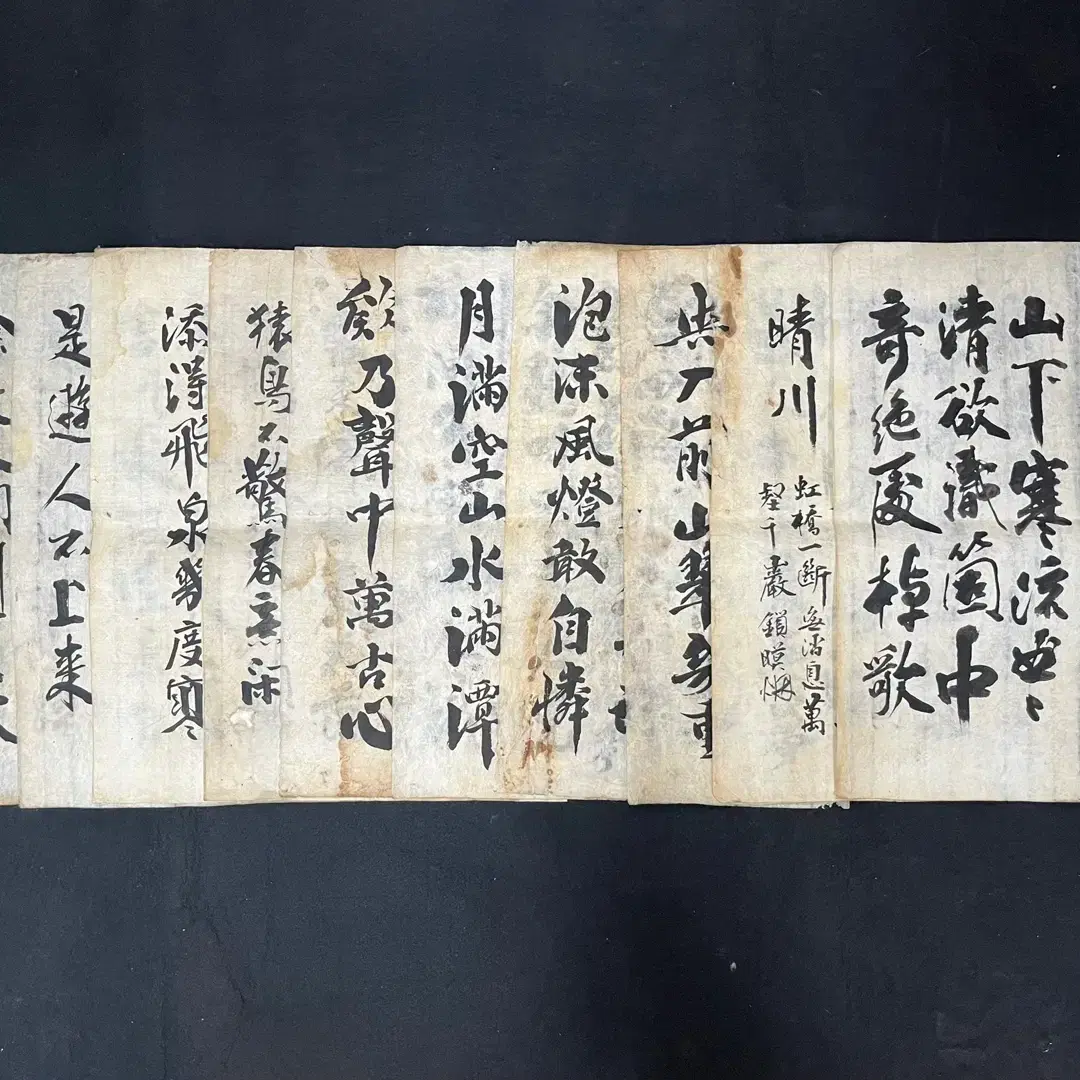 山下寒流曲〻
清欲識箇中
奇絶處棹歌
晴川
虹橋一斷無消息萬
壑千巖鎖暝烟
興入前山翠幾重
泡沫風燈敢自憐
月滿空山水滿潭
欸乃聲中萬古心
猿鳥不驚春意閑
添得飛泉幾度寒
是遊人不上来